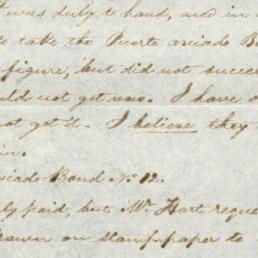 duly to hand, and in
take the Puerto
figure, but did not succe
ould not get now. I have
not got it. I believe they
in.
Bond No. 12.
ly paid, but Mr. Hart reque
rawn on stamp paper to